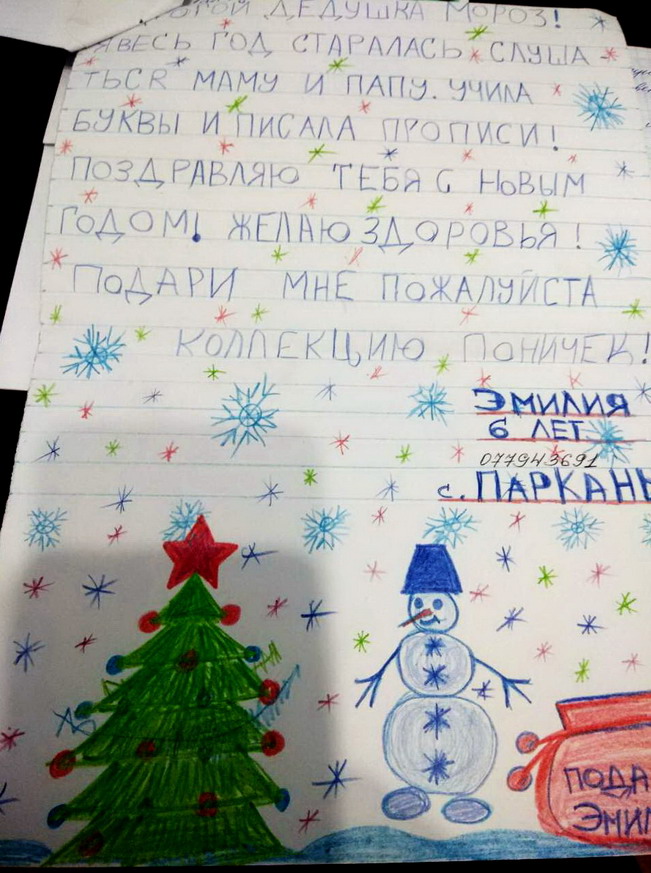 ДЕДУШКА МОРОЗ!
Я ВЕСЬ ГОД СТАРАЛАСЬ СЛУША
ТЬСЯ МАМУ И ПАПУ. УЧИЛА
БУКВЫ И ПИСАЛА ПРОПИСИ!
ПОЗДРАВЛЯЮ ТЕБЯ С НОВЫМ
ГОДОМ! ЖЕЛАЮ ЗДОРОВЬЯ!
ПОДАРИ МНЕ ПОЖАЛУЙСТА
КОЛЛЕКЦИЮ ПОНИЧЕК!
ЭМИЛИЯ
6 ЛЕТ
077943691
с. ПАРКАНЫ
ПОДА
ЭМИ